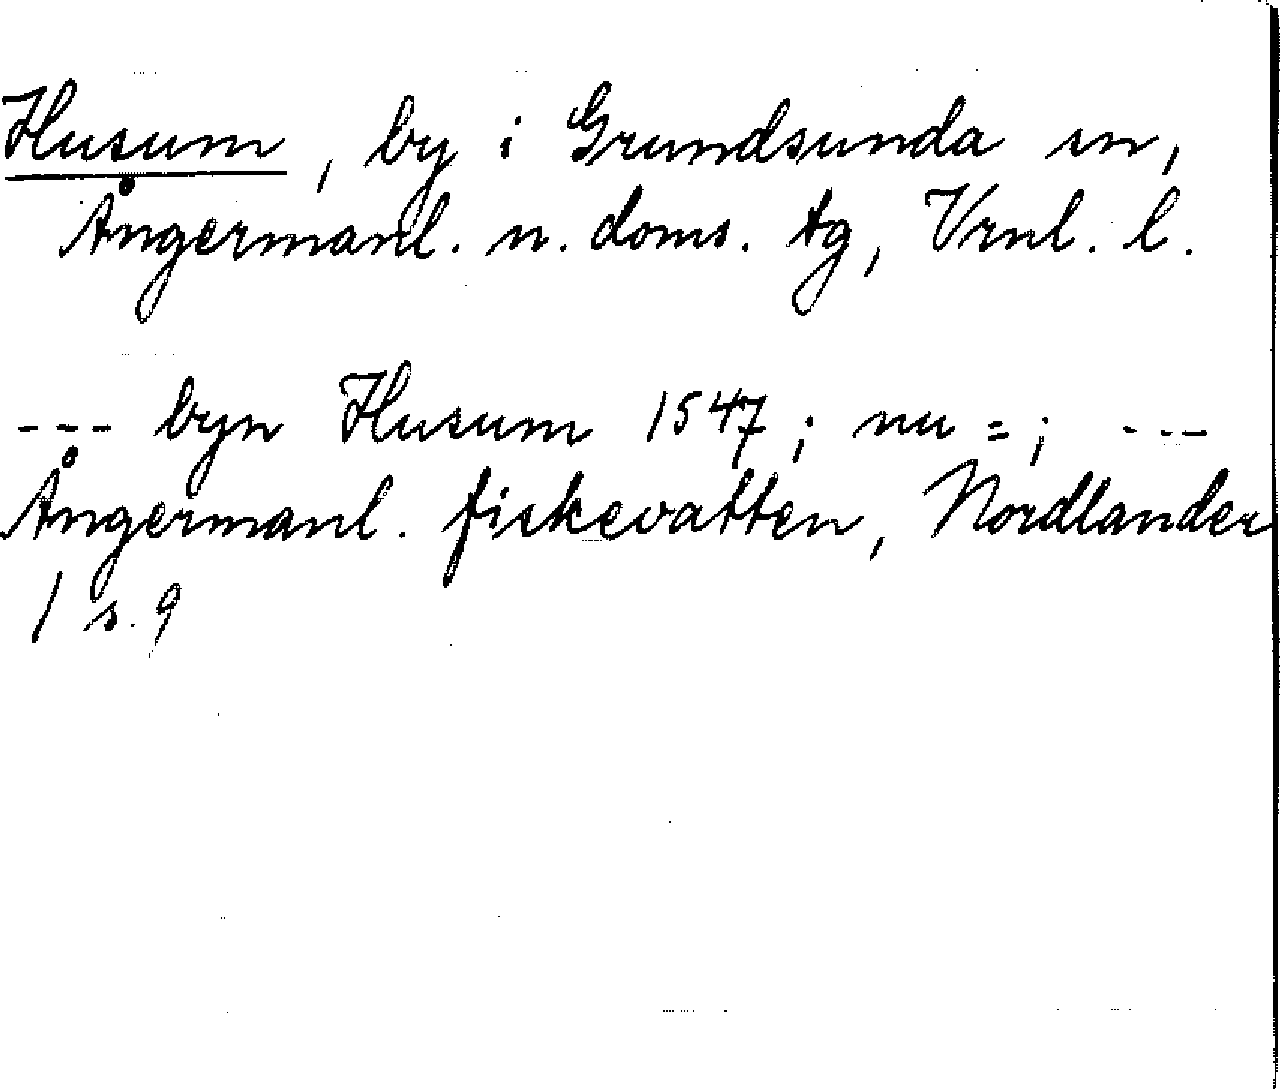 Husum, by i Grundsunda sn,
Ångermanl. n. doms. tg, Vrnl. l.
--- byn Husum 1547; nu =; ---
Ångermanl. fiskevatten, Nordlander
1 s. 9